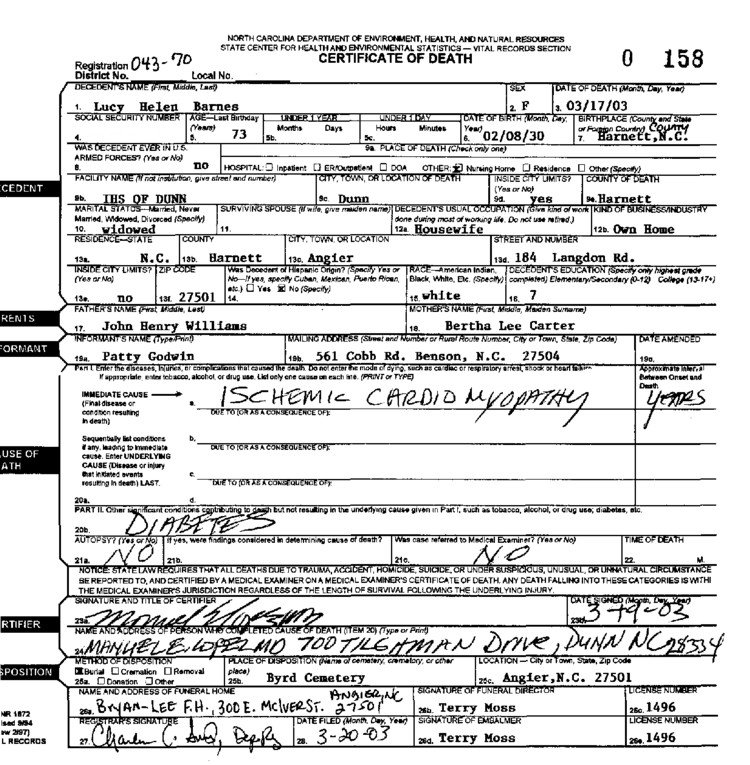 NORTH CAROLINA DEPARTMENT OF ENVIRONMENT, HEALTH, AND NATURAL RESOURCES
STATE CENTER FOR HEALTH AND ENVIRONMENTAL STATISTICS — VITAL RECORDS SECTION
CERTIFICATE OF DEATH
0 158
Registration 043-70
District No. Local No.
DECEDENT'S NAME (First, Middle, Last) SEX DATE OF DEATH (Month, Day, Year)
1. Lucy Helen Barnes 2. F 3. 03/17/03
SOCIAL SECURITY NUMBER AGE—Last Birthday UNDER 1 YEAR UNDER 1 DAY DATE OF BIRTH (Month, Day, BIRTHPLACE (County and State
(Years) Months Days Hours Minutes Year) or Foreign Country) County
4. 5. 73 5b. 5c. 6. 02/08/30 7. Harnett, N.C.
WAS DECEDENT EVER IN U.S. 9a. PLACE OF DEATH (Check only one)
ARMED FORCES? (Yes or No)
8. no HOSPITAL: Inpatient ER/Outpatient DOA OTHER: Nursing Home Residence Other (Specify)
CEDENT
FACILITY NAME (If not institution, give street and number) CITY, TOWN, OR LOCATION OF DEATH INSIDE CITY LIMITS? COUNTY OF DEATH
(Yes or No)
9b. IHS OF DUNN 9c. Dunn 9d. yes 9e. Harnett
MARITAL STATUS—Married, Never SURVIVING SPOUSE (If wife, give maiden name) DECEDENT'S USUAL OCCUPATION (Give kind of work KIND OF BUSINESS/INDUSTRY
Married, Widowed, Divorced (Specify) done during most of working life. Do not use retired.)
10. widowed 11. 12a. Housewife 12b. Own Home
RESIDENCE—STATE COUNTY CITY, TOWN, OR LOCATION STREET AND NUMBER
13a. N.C. 13b. Harnett 13c. Angier 13d. 184 Langdon Rd.
INSIDE CITY LIMITS? ZIP CODE Was Decedent of Hispanic Origin? (Specify Yes or RACE—American Indian, DECEDENT'S EDUCATION (Specify only highest grade
(Yes or No) No—If yes, specify Cuban, Mexican, Puerto Rican, Black, White, Etc. (Specify) completed) Elementary/Secondary (0-12) College (13-17+)
etc.) Yes No (Specify)
13e. no 13f. 27501 14. 15. white 16. 7
RENTS
FATHER'S NAME (First, Middle, Last) MOTHER'S NAME (First, Middle, Maiden Surname)
17. John Henry Williams 18. Bertha Lee Carter
FORMANT
INFORMANT'S NAME (Type/Print) MAILING ADDRESS (Street and Number or Rural Route Number, City or Town, State, Zip Code) DATE AMENDED
19a. Patty Godwin 19b. 561 Cobb Rd. Benson, N.C. 27504 19c.
Part I. Enter the diseases, injuries, or complications that caused the death. Do not enter the mode of dying, such as cardiac or respiratory arrest, shock or heart failure. Approximate Interval
If appropriate, enter tobacco, alcohol, or drug use. List only one cause on each line. (PRINT or TYPE) Between Onset and
Death
IMMEDIATE CAUSE
(Final disease or a. ISCHEMIC CARDIOMYOPATHY YEARS
condition resulting DUE TO (OR AS A CONSEQUENCE OF):
in death)
Sequentially list conditions b.
if any, leading to immediate DUE TO (OR AS A CONSEQUENCE OF):
cause. Enter UNDERLYING
CAUSE (Disease or injury
that initiated events c.
resulting in death) LAST. DUE TO (OR AS A CONSEQUENCE OF):
USE OF
ATH
20a. d.
PART II. Other significant conditions contributing to death but not resulting in the underlying cause given in Part I, such as tobacco, alcohol, or drug use; diabetes, etc.
20b. DIABETES
AUTOPSY? (Yes or No) If yes, were findings considered in determining cause of death? Was case referred to Medical Examiner? (Yes or No) TIME OF DEATH
21a. NO 21b. 21c. NO 22. M.
NOTICE: STATE LAW REQUIRES THAT ALL DEATHS DUE TO TRAUMA, ACCIDENT, HOMICIDE, SUICIDE, OR UNDER SUSPICIOUS, UNUSUAL, OR UNNATURAL CIRCUMSTANCE
BE REPORTED TO, AND CERTIFIED BY A MEDICAL EXAMINER ON A MEDICAL EXAMINER'S CERTIFICATE OF DEATH. ANY DEATH FALLING INTO THESE CATEGORIES IS WITHI
THE MEDICAL EXAMINER'S JURISDICTION REGARDLESS OF THE LENGTH OF SURVIVAL FOLLOWING THE UNDERLYING INJURY.
RTIFIER
SIGNATURE AND TITLE OF CERTIFIER DATE SIGNED (Month, Day, Year)
23a. 23b. 3-19-03
NAME AND ADDRESS OF PERSON WHO COMPLETED CAUSE OF DEATH (ITEM 20) (Type or Print)
24. MANUEL E. LOPEZ MD 700 TILGHMAN DRIVE, DUNN NC 28334
SPOSITION
METHOD OF DISPOSITION PLACE OF DISPOSITION (Name of cemetery, crematory, or other LOCATION — City or Town, State, Zip Code
Burial Cremation Removal place)
25a. Donation Other 25b. Byrd Cemetery 25c. Angier, N.C. 27501
NAME AND ADDRESS OF FUNERAL HOME ANGIER, NC SIGNATURE OF FUNERAL DIRECTOR LICENSE NUMBER
26a. BRYAN-LEE F.H., 300 E. McIVER ST. 27501 26b. Terry Moss 26c. 1496
REGISTRAR'S SIGNATURE DATE FILED (Month, Day, Year) SIGNATURE OF EMBALMER LICENSE NUMBER
27. 28. 3-20-03 26d. Terry Moss 26e. 1496
NR 1872
ised 9/94
ew 2/97)
L RECORDS